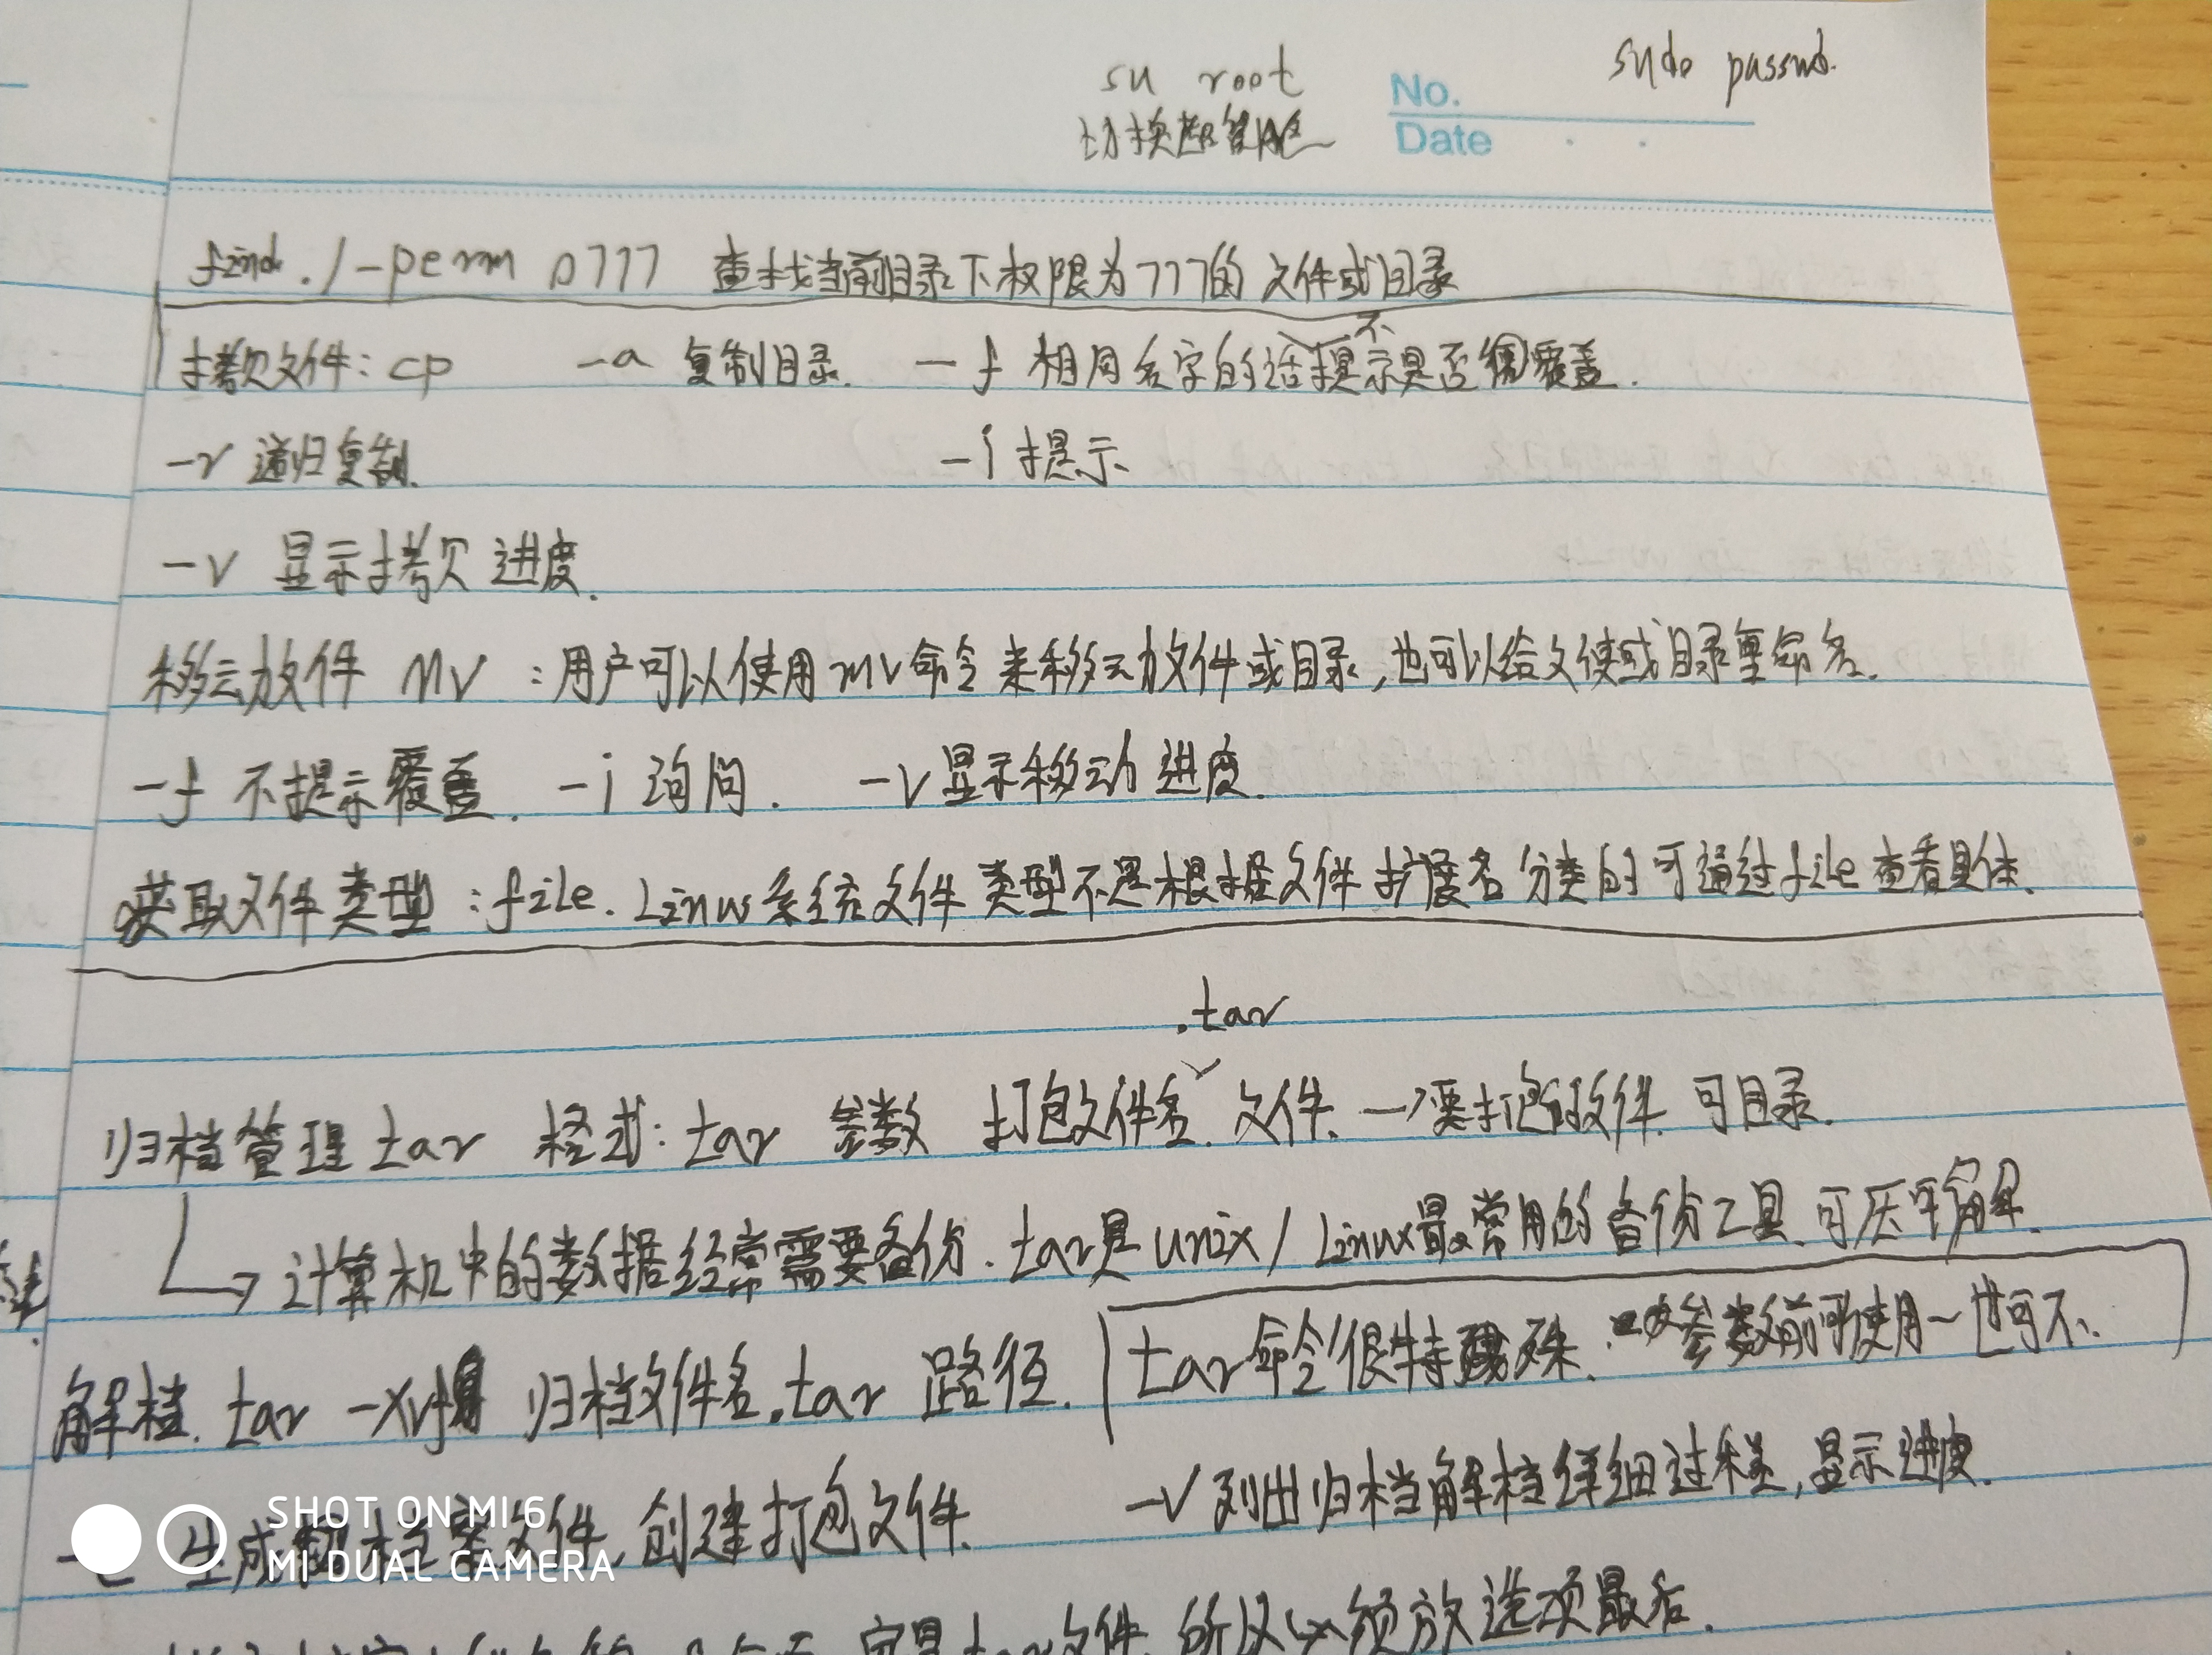 su root
sudo passwd.
切换超管
No.
Date
find ./ -perm 0777 查找当前目录下权限为777的文件或目录
拷贝文件: cp -a 复制目录. -f 相同名字的话不提示是否覆盖.
-r 递归复制. -i 提示
-v 显示拷贝进度.
移动文件 mv : 用户可以使用mv命令来移动文件或目录,也可以给文件或目录重命名.
-f 不提示覆盖. -i 询问. -v 显示移动进度.
获取文件类型: file. Linux系统文件类型不是根据文件扩展名分类的可通过file查看具体.
.tar
归档管理 tar 格式: tar 参数 打包文件名. 文件. →要打包的文件. 可目录.
计算机中的数据经常需要备份. tar是unix/Linux最常用的备份工具. 可压可解.
解档. tar -xvf 归档文件名.tar 路径. tar命令很特殊. 参数前可使用-也可不.
生成档案文件, 创建打包文件. -v 列出归档解档详细过程, 显示进度.
tar文件, 所以必须放选项最后.
SHOT ON MI 6
MI DUAL CAMERA